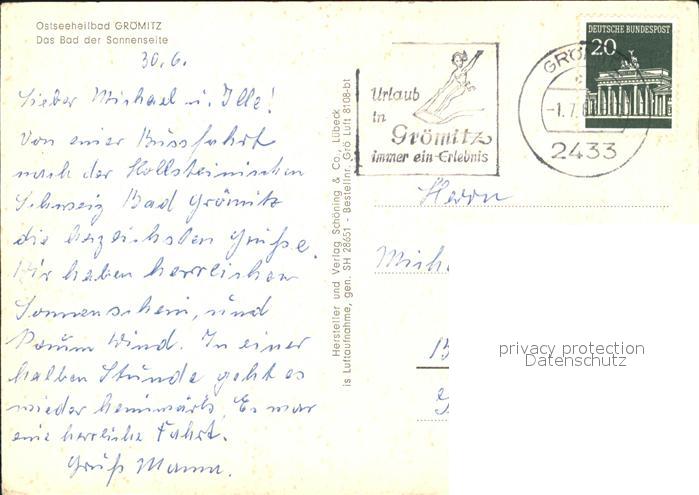 Ostseeheilbad GRÖMITZ
Das Bad der Sonnenseite
30.6.
Lieber Michael u. Ille!
Von einer Bussfahrt
nach der Hollsteinischen
Schweiz Bad Grömitz
die herzlichsten Grüße.
Wir haben herrlichen
Sonnenschein, und
kaum Wind. In einer
halben Stunde geht es
wieder heimwärts. Es war
eine herrliche Fahrt.
Gruß Mama.
Hersteller und Verlag Schöning & Co., Lübeck
is Luftaufnahme, gen. SH 28651 - Bestellnr. Grö Luft 8108-bt
Urlaub
in
Grömitz
immer ein Erlebnis
DEUTSCHE BUNDESPOST
20
-1.7.
2433
Herrn
Mich
privacy protection
Datenschutz